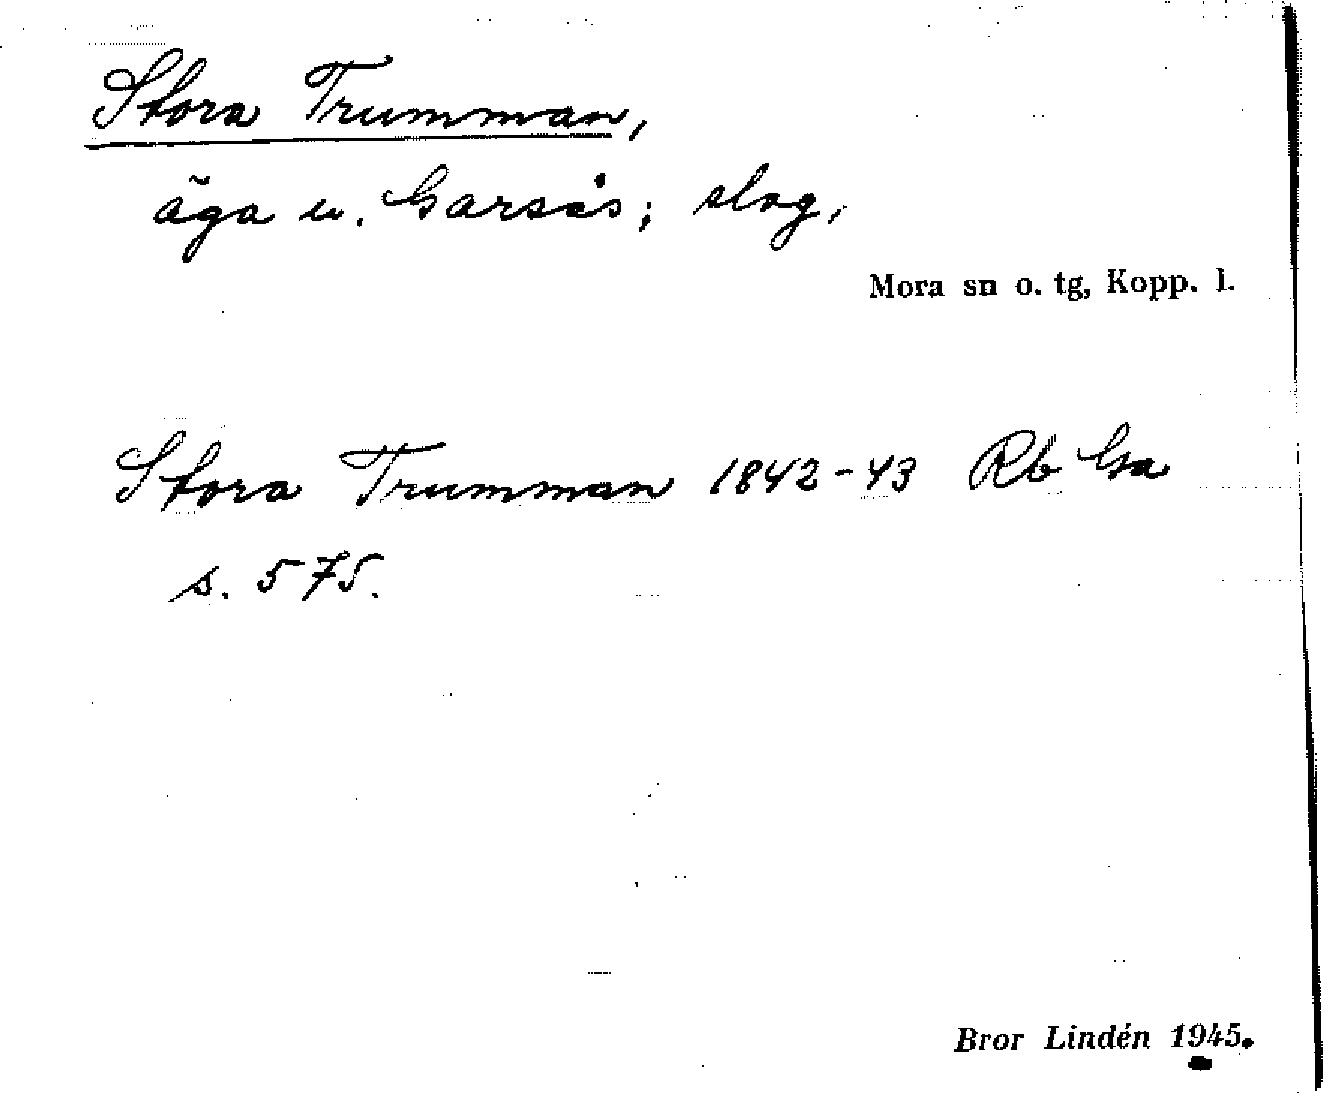 Stora Trumman,
äga u. Garsås; slog,
Mora sn o. tg, Kopp. l.
Stora Trumman 1842-43 Rb Ga
s. 575.
Bror Lindén 1945.